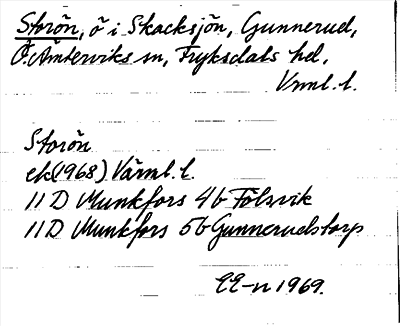 Storön, ö i Skacksjön, Gunnerud,
Ö. Ämterviks sn, Fryksdals hd,
Vrml. l.
Storön
ek (1968) Värml. l.
11 D Munkfors 4b Fölsvik
11 D Munkfors 5b Gunnerudstorp
EE-n 1969.